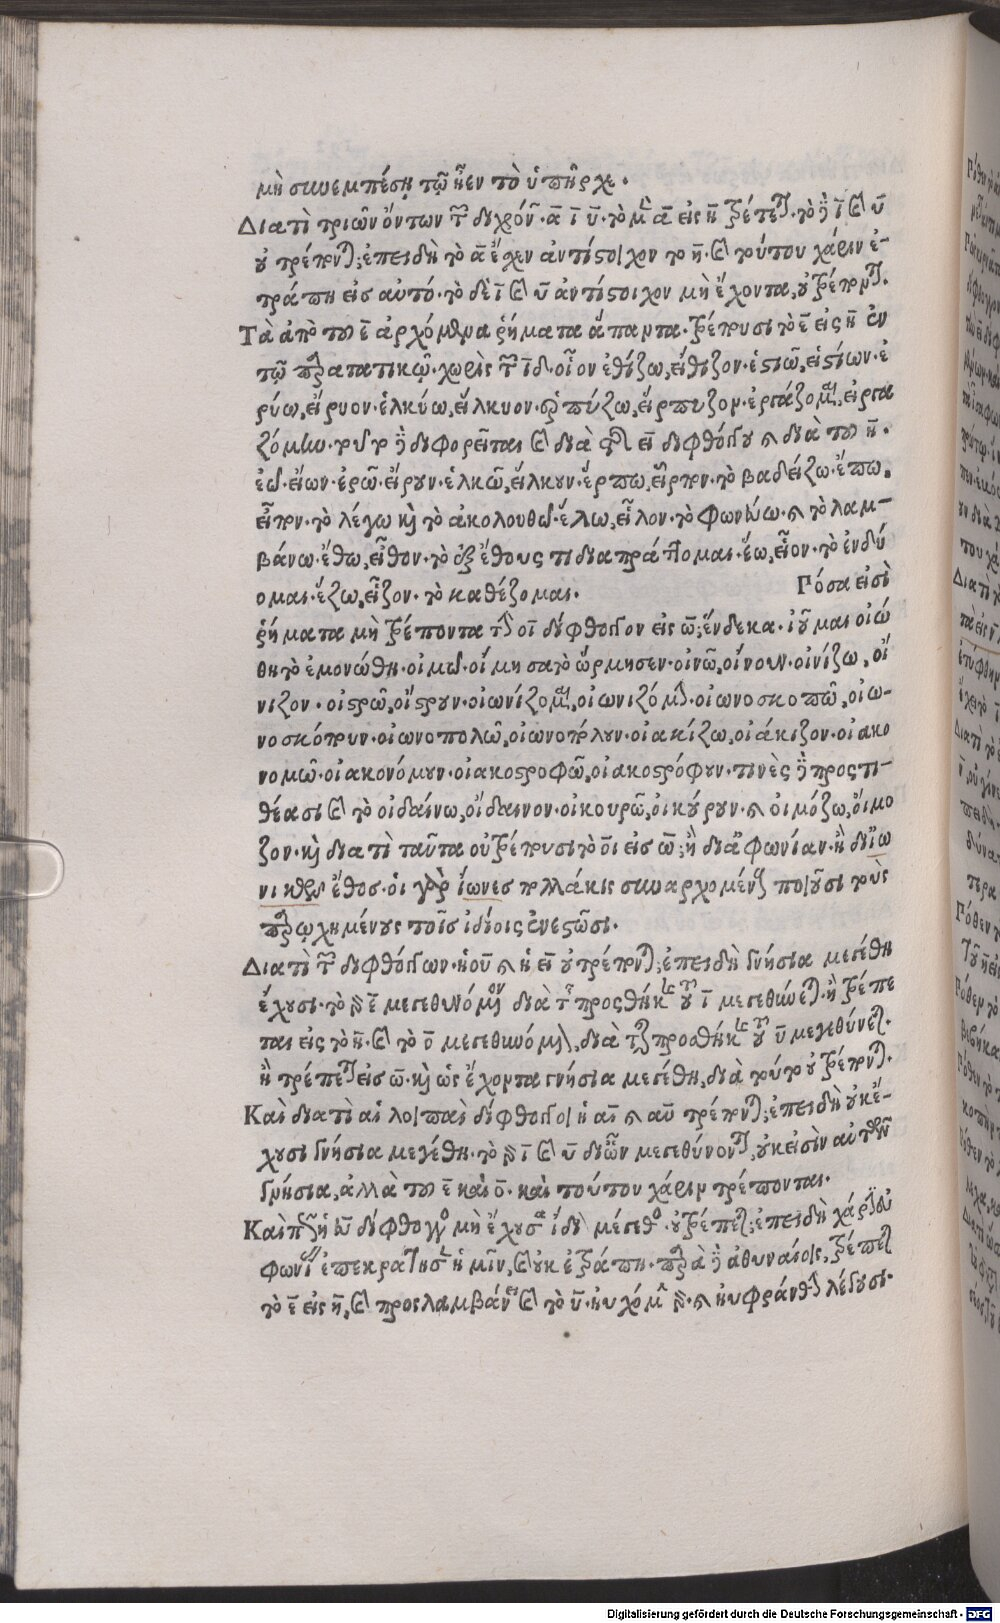 μὴ συνεμπέσῃ τῷ ἦεν τὸ ὑπῆρχε.
Διατί τριῶν ὄντων τῶν διχρόνων· ᾱ ῑ ῡ· τὸ μὲν ᾱ εἰς η̄ τρέπεται· τὸ δὲ ῑ καὶ ῡ
οὐ τρέπονται; ἐπειδὴ τὸ ᾱ ἔχει ἀντίστοιχον τὸ η̄· καὶ τούτου χάριν ἐ-
τράπη εἰσ αὐτό· τὸ δὲ ῑ καὶ ῡ ἀντίστοιχον μὴ ἔχοντα, οὐ τρέπονται.
Τὰ ἀπὸ τοῦ ε̄ ἀρχόμενα ῥήματα ἅπαντα· τρέπουσι τὸ ε̄ εἰς η̄ ἐν
τῷ παρατατικῷ· χωρὶς τῶν ῑδ· οἷον ἐθίζω, εἴθιζον· ἑστιῶ, εἱστίων· ἐ
ρύω, εἴρυον· ἑλκύω, εἵλκυον· ἑρπύζω, εἵρπυζον· ἐργάζομαι, εἰργα
ζόμην· διφορεῖται καὶ διὰ τῆς ει διφθόγγου καὶ διὰ τοῦ η̄·
ἐῶ· εἴων· ἐρῶ· εἴρουν· ἑλκῶ, εἵλκουν· ἕρπω, εἷρπον· τὸ βαδίζω· ἕπω,
εἷπον· τὸ λέγω καὶ τὸ ἀκολουθῶ· ἕλω, εἷλον· τὸ φονεύω· καὶ τὸ λαμ-
βάνω· ἔθω, εἶθον· τὸ ἐξ ἔθους τι διαπράττομαι· ἕω, εἷον· τὸ ἐνδύ
ομαι· ἕζω, εἷζον· τὸ καθέζομαι. Πόσα εἰσὶ
ῥήματα μὴ τρέποντα τὴν οῑ δίφθογγον εἰς ω̄; ἕνδεκα· οἰῶ
θη τὸ ἐμονώθη· οἰμῶ· οἴμησα τὸ ὥρμησεν· οἰνῶ, οἴνουν· οἰνίζω, οἴ
νιζον· οἰστρῶ, οἴστρουν· οἰωνίζομαι, οἰωνιζόμην· οἰωνοσκοπῶ, οἰω-
νοσκόπουν· οἰωνοπολῶ, οἰωνοπόλουν· οἰακίζω, οἰάκιζον· οἰακο
νομῶ· οἰακονόμουν· οἰακοστροφῶ, οἰακοστρόφουν· τινὲς δὲ προστι-
θέασι καὶ τὸ οἰδαίνω, οἴδαινον· οἰκουρῶ, οἰκούρουν· καὶ οἰμόζω, οἴμο
ζον· καὶ διατί ταῦτα οὐ τρέπουσι τὸ οῑ εἰσ ω̄; ἢ δι' εὐφωνίαν· ἢ δι' ἰω
νικὸν ἔθοσ· οἱ γὰρ ἴωνεσ πολλάκις συναρχομένους ποιοῦσι τοὺς
παρῳχημένους τοῖσ ἰδίοις ἐνεστῶσι.
Διατί τῶν διφθόγγων· ἡ οῡ καὶ ἡ εῑ οὐ τρέπονται; ἐπειδὴ γνήσια μεγέθη
ἔχουσι· τὸ γὰρ ε̄ μεγεθυνόμενον διὰ τῆς προσθήκης τοῦ ῑ μεγεθύνεται· ἢ τρέπε
ται εἰς τὸ η̄· καὶ τὸ ο̄ μεγεθυνόμενον, διὰ τῆς προσθήκης τοῦ ῡ μεγεθύνεται·
ἢ τρέπεται εἰσ ω̄· καὶ ὡς ἔχοντα γνήσια μεγέθη, διὰ τοῦτο οὐ τρέπονται.
Καὶ διατί αἱ λοιπαὶ δίφθογγοι ἡ αῑ καὶ αῡ τρέπονται; ἐπειδὴ οὐκ ἔ-
χουσι γνήσια μεγέθη· τὸ γὰρ ῑ καὶ ῡ δι' ὧν μεγεθύνονται, οὐκ εἰσὶν αὐτῶν
γνήσια, ἀλλὰ τοῦ ε̄ καὶ ο̄· καὶ τούτου χάριν τρέπονται.
Καὶ πῶς ἡ εῡ δίφθογγος μὴ ἔχουσα ἴδιον μέγεθος· οὐ τρέπεται; ἐπειδὴ χάριν εὐ
φωνίας ἐπεκράτησεν ἡμῖν, καὶ οὐκ ἐτράπη· παρὰ δὲ ἀθηναίοις, τρέπεται
τὸ ε̄ εἰς η̄, καὶ προσλαμβάνει καὶ τὸ ῡ· ηὐχόμην γὰρ· καὶ ηὐφράνθην λέγουσι.